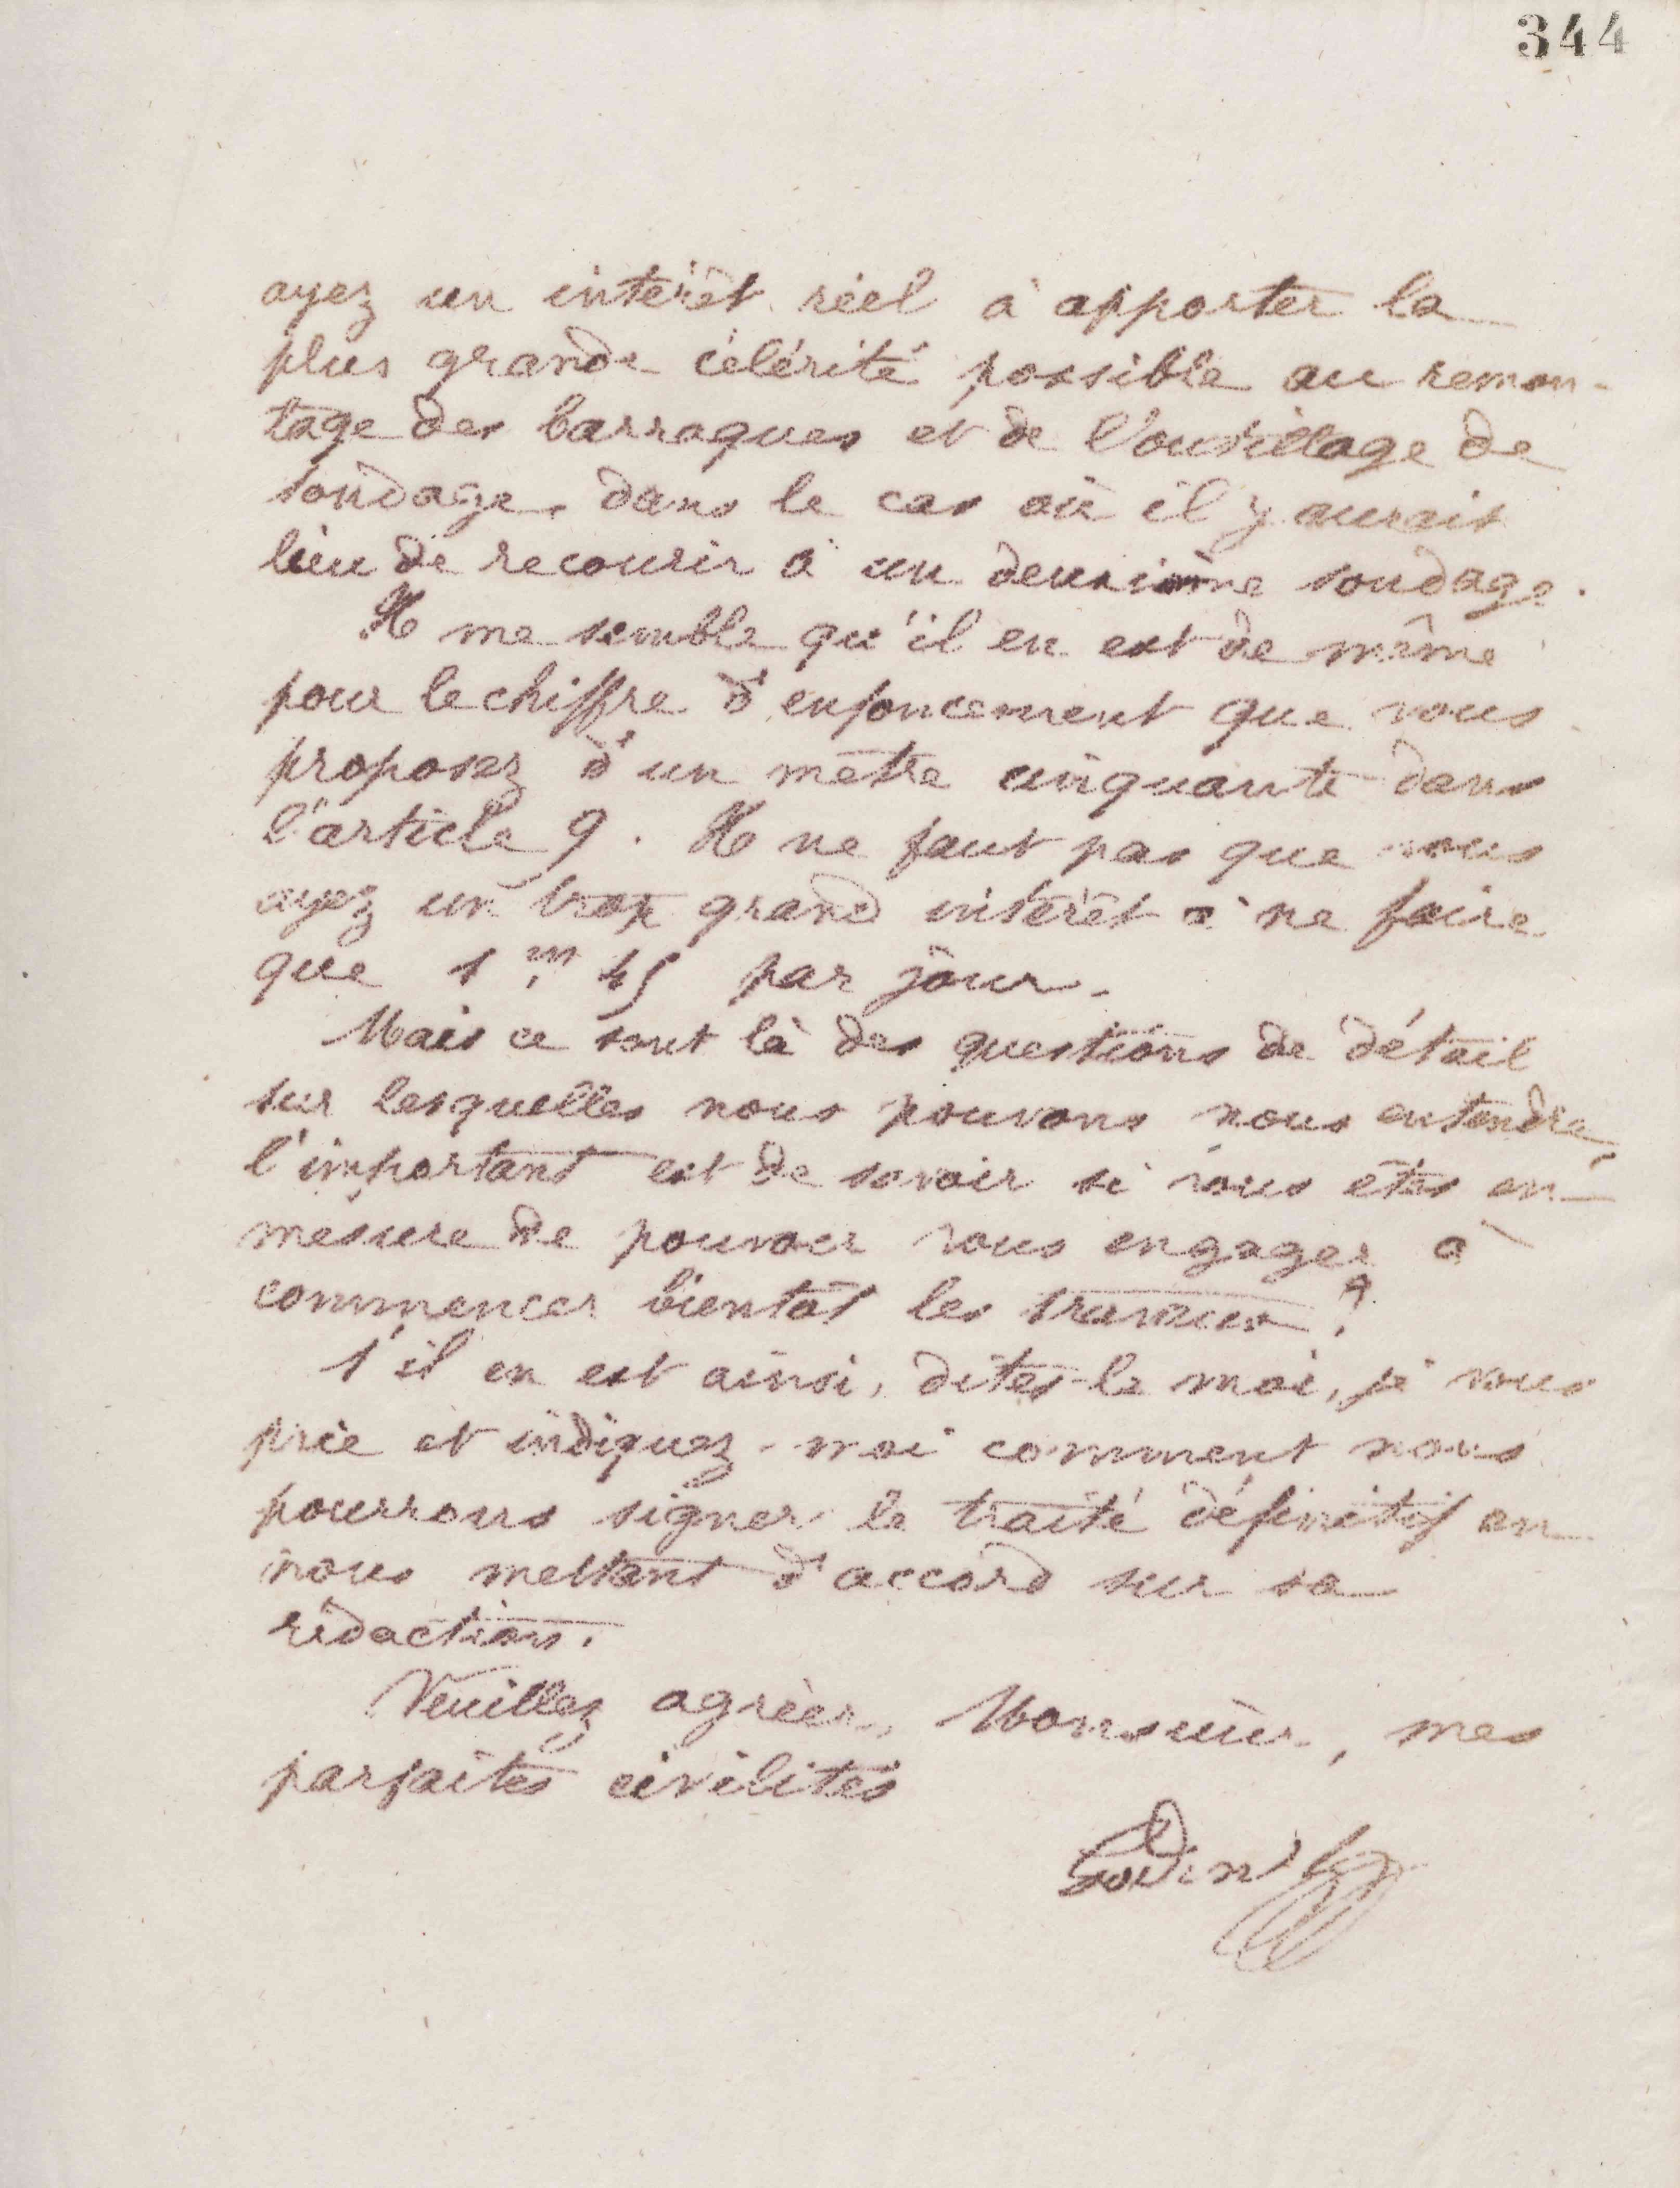 344
ayez un intérêt réel à apporter la
plus grande célérité possible au remon-
tage des barraques et de l'outillage de
sondage, dans le cas où il y aurait
lieu de recourir à un deuxième sondage.
Il me semble qu'il en est de même
pour le chiffre d'enfoncement que vous
proposez d'un mètre cinquante dans
l'article 9. Il ne faut pas que vous
ayez un trop grand intérêt à ne faire
que 1m,45 par jour.
Mais ce sont là des questions de détail
sur lesquelles nous pouvons nous entendre,
l'important est de savoir si vous êtes en
mesure de pouvoir vous engager à
commencer bientôt les travaux ?
S'il en est ainsi, dites-le moi, je vous
prie et indiquez-moi comment nous
pourrons signer le traité définitif en
nous mettant d'accord sur sa
rédaction.
Veuillez agréer, Monsieur, mes
parfaites civilités
Godin